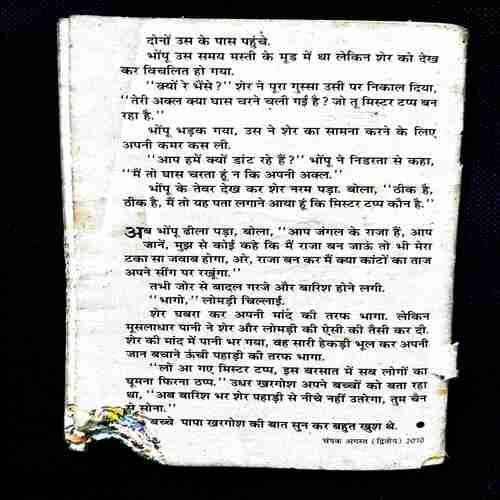 दोनों उस के पास पहुंचे.
भोंपू उस समय मस्ती के मूड में था लेकिन शेर को देख
कर विचलित हो गया.
‘‘क्यों रे भैंसे?’’ शेर ने पूरा गुस्सा उसी पर निकाल दिया,
‘‘तेरी अक्ल क्या घास चरने चली गई है? जो तू मिस्टर टप्प बन
रहा है.’’
भोंपू भड़क गया, उस ने शेर का सामना करने के लिए
अपनी कमर कस ली.
‘‘आप हमें क्यों डांट रहे हैं?’’ भोंपू ने निडरता से कहा,
‘‘मैं तो घास चरता हूं न कि अपनी अक्ल.’’
भोंपू के तेवर देख कर शेर नरम पड़ा. बोला, ‘‘ठीक है,
ठीक है, मैं तो यह पता लगाने आया हूं कि मिस्टर टप्प कौन है.’’
अब भोंपू ढीला पड़ा, बोला, ‘‘आप जंगल के राजा हैं, आप
जानें, मुझ से कोई कहे कि मैं राजा बन जाऊं तो भी मेरा
टका सा जवाब होगा, अरे, राजा बन कर मैं क्या कांटों का ताज
अपने सींग पर रखूंगा.’’
तभी जोर से बादल गरजे और बारिश होने लगी.
‘‘भागो,’’ लोमड़ी चिल्लाई.
शेर घबरा कर अपनी मांद की तरफ भागा. लेकिन
मूसलाधार पानी ने शेर और लोमड़ी की ऐसी की तैसी कर दी.
शेर की मांद में पानी भर गया, वह सारी हेकड़ी भूल कर अपनी
जान बचाने ऊंची पहाड़ी की तरफ भागा.
‘‘लो आ गए मिस्टर टप्प, इस बरसात में सब लोगों का
घूमना फिरना ठप्प,’’ उधर खरगोश अपने बच्चों को बता रहा
था, ‘‘अब बारिश भर शेर पहाड़ी से नीचे नहीं उतरेगा, तुम चैन
से सोना.’’
बच्चे पापा खरगोश की बात सुन कर बहुत खुश थे. ●
चंपक अगस्त (द्वितीय) 2010